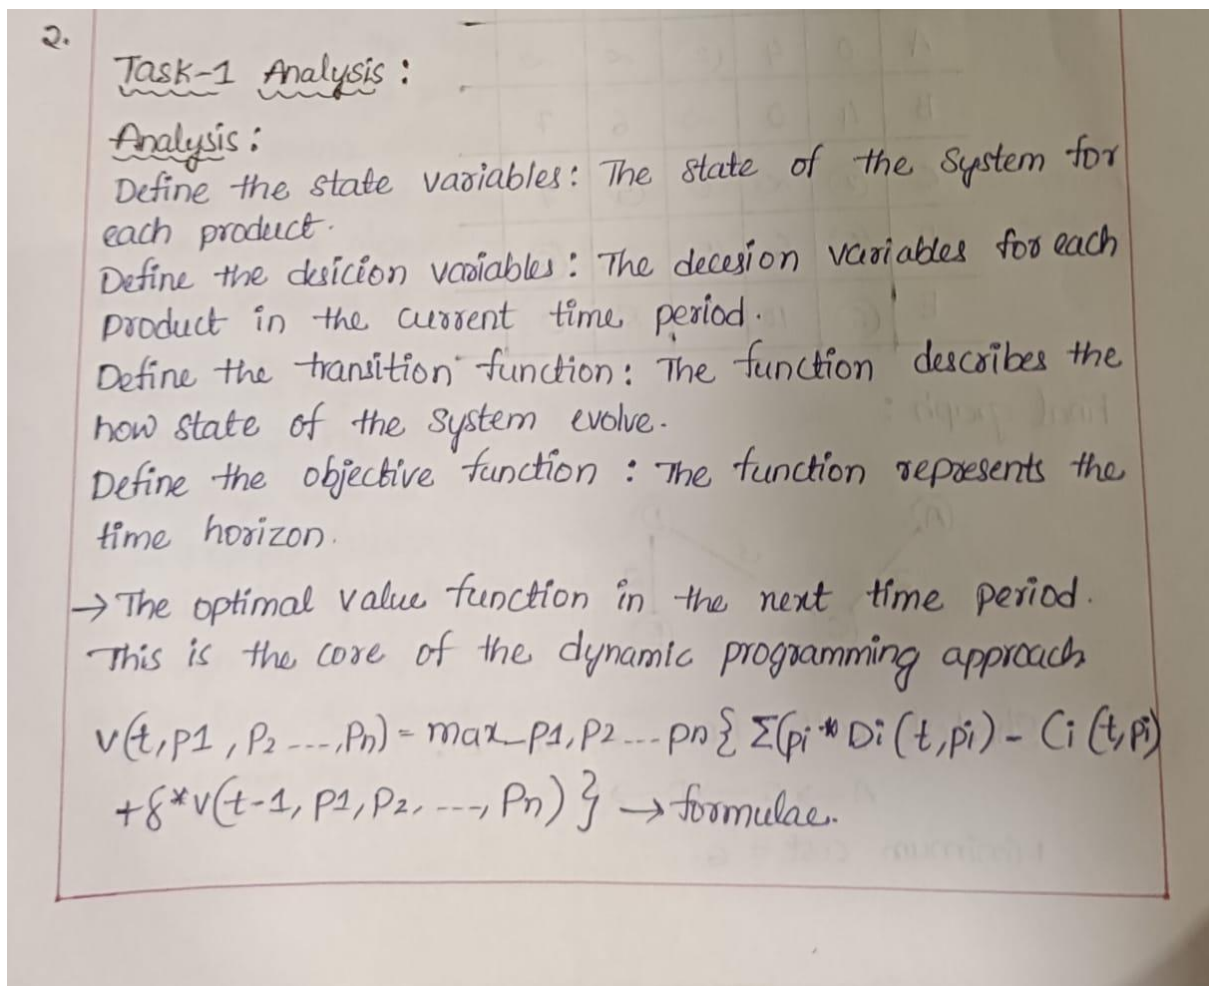 2.
Task-1 Analysis :
Analysis :
Define the state variables : The state of the system for
each product.
Define the desicion variables : The decesion variables for each
product in the current time period.
Define the transition function : The function describes the
how state of the system evolve.
Define the objective function : The function represents the
time horizon.
→ The optimal value function in the next time period.
This is the core of the dynamic programming approach
v(t,p1, P2 ---, Pn) = max_p1, p2 --- pn { Σ(pi * Di (t, pi) - Ci (t, pi)
+ δ * v(t-1, P1, P2, ---, Pn) } → formulae.